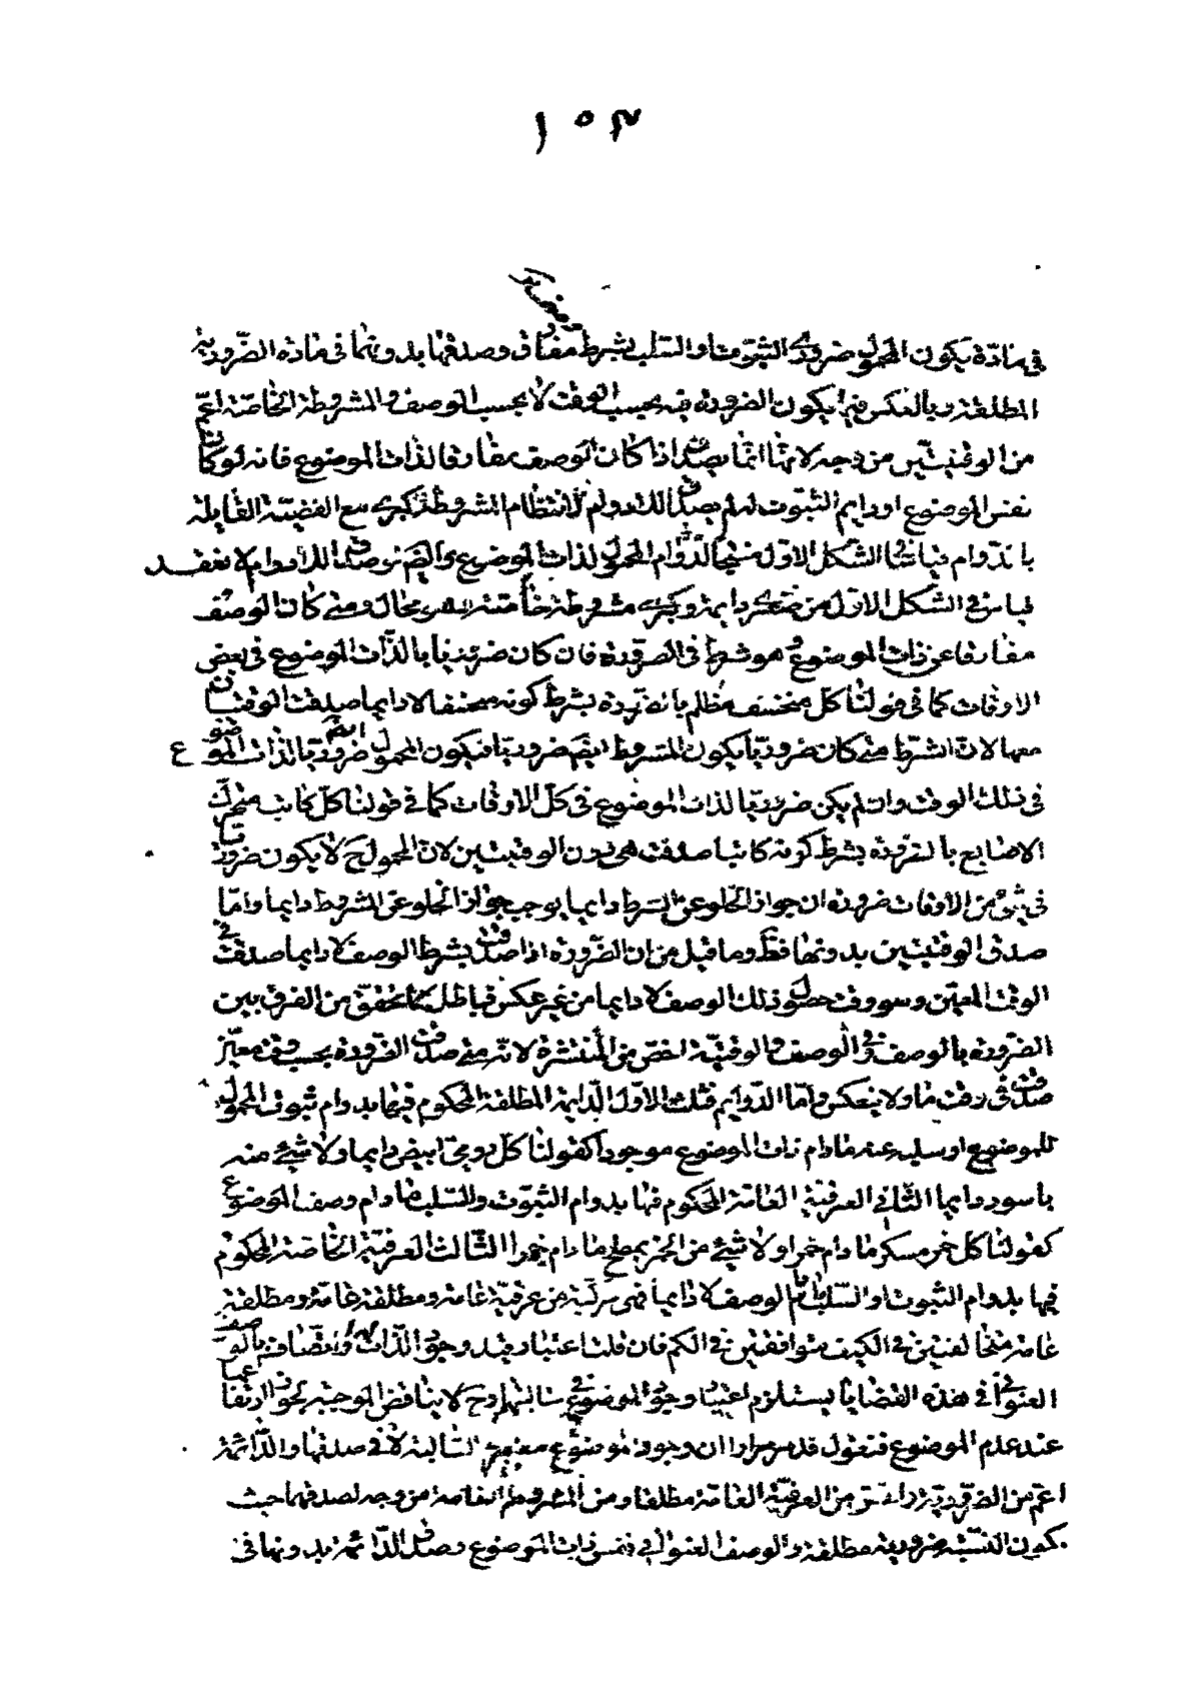 ١٥٣
في مادة يكون المحمول ضروري الثبوت او السلب بشرط مفارق وصدقها بدونها في مادة الضرورية
المطلقة وبالعكس فيما يكون الضرورة فيه بحسب الوقت لا بحسب الوصف والمشروطة الخاصة اعم
من الوقتيتين من وجه لانها انما يصدق اذا كان الوصف مفارقا لذات الموضوع فانه لو كان
نفس الموضوع او دايم الثبوت له لم يصدق اللادوام لانتظام المشروطة كبرى مع القضية القايلة
بالدوام قياسا في الشكل الاول منتجا لدوام المحمول لذات الموضوع وايضم لو صدق اللادوام لانعقد
قياس في الشكل الاول من صغرى دايمة وكبرى مشروطة خاصة وهو محال ومتى كان الوصف
مفارقا عن ذات الموضوع وهو شرط في الضرورة فان كان ضروريا بالذات الموضوع في بعض
الاوقات كما في قولنا كل منخسف مظلم بالضرورة بشرط كونه منخسفا لا دايما صدقت الوقتيتان
معها لان الشرط متى كان ضروريا يكون المشروط ايضم ضروريا فيكون المحمول ايضم ضروريا لذات الموضوع
في ذلك الوقت وان لم يكن ضروريا لذات الموضوع في كل الاوقات كما في قولنا كل كاتب متحرك
الاصابع بالضرورة بشرط كونه كاتبا صدقت هي دون الوقتيتين لان المحمول ح لا يكون ضروريا
في شئ من الاوقات ضرورة ان جواز الخلو عن الشرط دايما يوجب جواز الخلو عن المشروط دايما واما
صدق الوقتيتين بدونها فظ وما قيل من ان الضرورة اذا صدقت بشرط الوصف لا دايما صدقت في
الوقت المعين وهو وقت حصول ذلك الوصف لا دايما من غير عكس فباطل لما تحقق من الفرق بين
الضرورة بالوصف وفي الوصف والوقتية اخص من المنتشرة لانه متى صدقت الضرورة بحسب وقت معين
صدقت في وقت ما ولا ينعكس واما الدوايم فثلث الاول الدايمة المطلقة المحكوم فيها بدوام ثبوت المحمول
للموضوع او سلبه عنه ما دام ذات الموضوع موجودا كقولنا كل رومي ابيض دايما ولا شئ منه
باسود دايما الثاني العرفية العامة المحكوم فيها بدوام الثبوت والسلب ما دام وصف الموضوع
كقولنا كل خمر مسكر ما دام خمرا ولا شئ من الخمر بملح ما دام خمرا الثالث العرفية الخاصة المحكوم
فيها بدوام الثبوت او السلب ما دام الوصف لا دايما فهي مركبة من عرفية عامة ومطلقة عامة ومطلقة
عامة متخالفتين في الكيف متوافقتين في الكم فان قلت اعتبار قيد وجود الذات واتصافه بالوصف
العنواني في هذه القضايا يستلزم اعتبار وجود الموضوع في سالبتها وح لا يناقض الموجبة لجواز ارتفاعهما
عند عدم الموضوع فنقول قد مر مرارا ان وجود موضوع السالبة لا في صدقها والدائمة
اعم من الضرورية ومن العرفية العامة مطلقا ومن المشروطة العامة من وجه لصدقهما حيث
يكون النسبة ضرورية مطلقة والوصف العنواني نفس ذات الموضوع وصدق الدائمة بدونها في